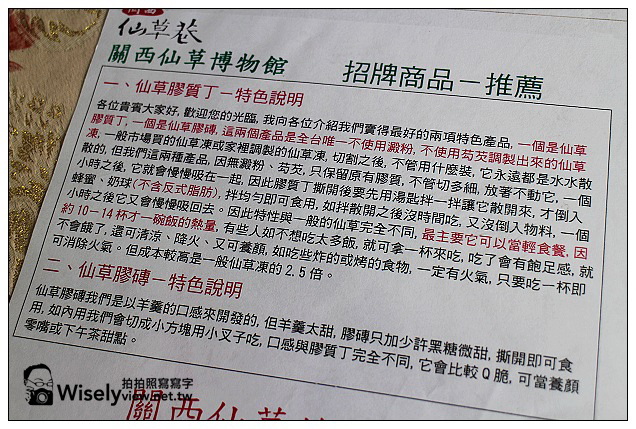 仙草巷
關西仙草博物館 招牌商品－推薦
一、仙草膠質丁－特色說明
各位貴賓大家好, 歡迎您的光臨, 我向各位介紹我們賣得最好的兩項特色產品, 一個是仙草
膠質丁, 一個是仙草膠磚, 這兩個產品是全台唯一不使用澱粉, 不使用芶芡調製出來的仙草
凍, 一般市場買的仙草凍或家裡調製的仙草凍, 切割之後, 不管用什麼裝, 它永遠都是水水散
散的, 但我們這兩種產品, 因無澱粉、芶芡, 只保留原有膠質, 不管切多細, 放著不動它, 一個
小時之後, 它就會慢慢吸在一起, 因此膠質丁撕開後要先用湯匙拌一拌讓它散開來, 才倒入
蜂蜜、奶球(不含反式脂肪), 拌均勻即可食用, 如拌散開之後沒時間吃, 又沒倒入物料, 一個
小時之後它又會慢慢吸回去。因此特性與一般的仙草完全不同, 最主要它可以當輕食餐, 因
約10－14杯才一碗飯的熱量, 有些人如不想吃太多飯, 就可拿一杯來吃, 吃了會有飽足感, 就
不會餓了, 還可清涼、降火、又可養顏, 如吃些炸的或烤的食物, 一定有火氣, 只要吃一杯即
可消除火氣。但成本較高是一般仙草凍的2.5倍。
二、仙草膠磚－特色說明
仙草膠磚我們是以羊羹的口感來開發的, 但羊羹太甜, 膠磚只加少許黑糖微甜, 撕開即可食
用, 如內用我們會切成小方塊用小叉子吃, 口感與膠質丁完全不同, 它會比較Q脆, 可當養顏
零嘴或下午茶甜點。
拍拍照寫寫字
Wiselyview.net.tw
關西仙草